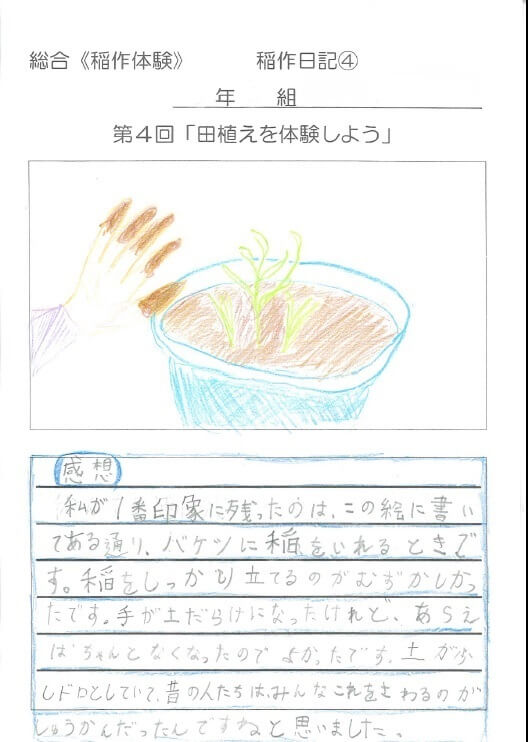 総合《稲作体験》 稲作日記④
年 組
第4回「田植えを体験しよう」
感想
私が1番印象に残ったのは、この絵に書い
てある通り、バケツに稲をいれるときで
す。稲をしっかり立てるのがむずかしかっ
たです。手が土だらけになったけれど、あらえ
ばちゃんとなくなったのでよかったです。土が
しドロとしていて、昔の人たちは、みんなこれをさわるのが
しゅうかんだったんですねと思いました。